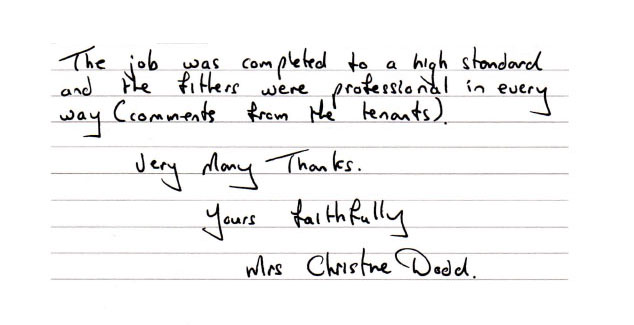 The job was completed to a high standard
and the fitters were professional in every
way (comments from the tenants).
Very Many Thanks.
Yours faithfully
Mrs Christine Dodd.